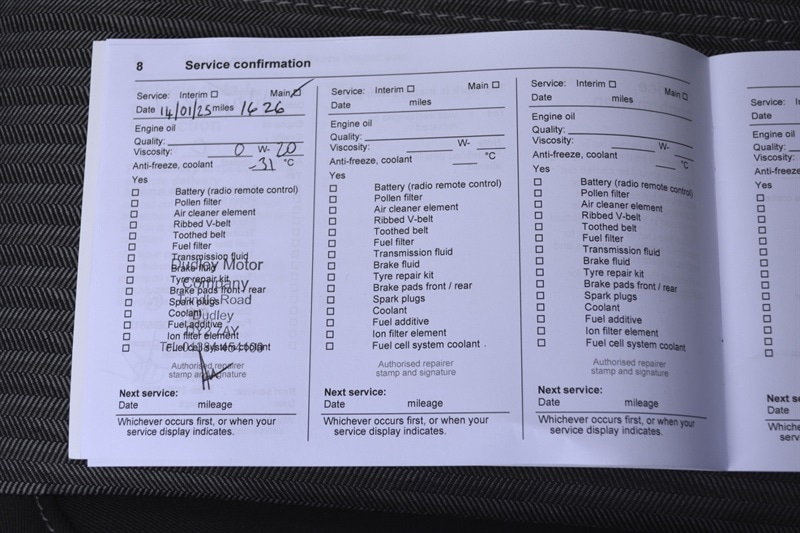 8 Service confirmation
Service: Interim ☐ Main ☑
Date 14/01/25 miles 1626
Engine oil
Quality:
Viscosity: 0 W- 20
Anti-freeze, coolant -31 °C
Yes
☐ Battery (radio remote control)
☐ Pollen filter
☐ Air cleaner element
☐ Ribbed V-belt
☐ Toothed belt
☐ Fuel filter
☐ Transmission fluid
☐ Brake fluid
☐ Tyre repair kit
☐ Brake pads front / rear
☐ Spark plugs
☐ Coolant
☐ Fuel additive
☐ Ion filter element
☐ Fuel cell system coolant
Dudley Motor
Company
Road
Dudley
Authorised repairer
stamp and signature
Next service:
Date mileage
Whichever occurs first, or when your
service display indicates.
Service: Interim ☐ Main ☐
Date miles
Engine oil
Quality:
Viscosity: W-
Anti-freeze, coolant °C
Yes
☐ Battery (radio remote control)
☐ Pollen filter
☐ Air cleaner element
☐ Ribbed V-belt
☐ Toothed belt
☐ Fuel filter
☐ Transmission fluid
☐ Brake fluid
☐ Tyre repair kit
☐ Brake pads front / rear
☐ Spark plugs
☐ Coolant
☐ Fuel additive
☐ Ion filter element
☐ Fuel cell system coolant
Authorised repairer
stamp and signature
Next service:
Date mileage
Whichever occurs first, or when your
service display indicates.
Service: Interim ☐ Main ☐
Date miles
Engine oil
Quality:
Viscosity: W-
Anti-freeze, coolant °C
Yes
☐ Battery (radio remote control)
☐ Pollen filter
☐ Air cleaner element
☐ Ribbed V-belt
☐ Toothed belt
☐ Fuel filter
☐ Transmission fluid
☐ Brake fluid
☐ Tyre repair kit
☐ Brake pads front / rear
☐ Spark plugs
☐ Coolant
☐ Fuel additive
☐ Ion filter element
☐ Fuel cell system coolant
Authorised repairer
stamp and signature
Next service:
Date mileage
Whichever occurs first, or when your
service display indicates.
Service:
Date
Engine oil
Quality:
Viscosity:
Anti-freeze
Yes
Next se
Date
Whiche
service